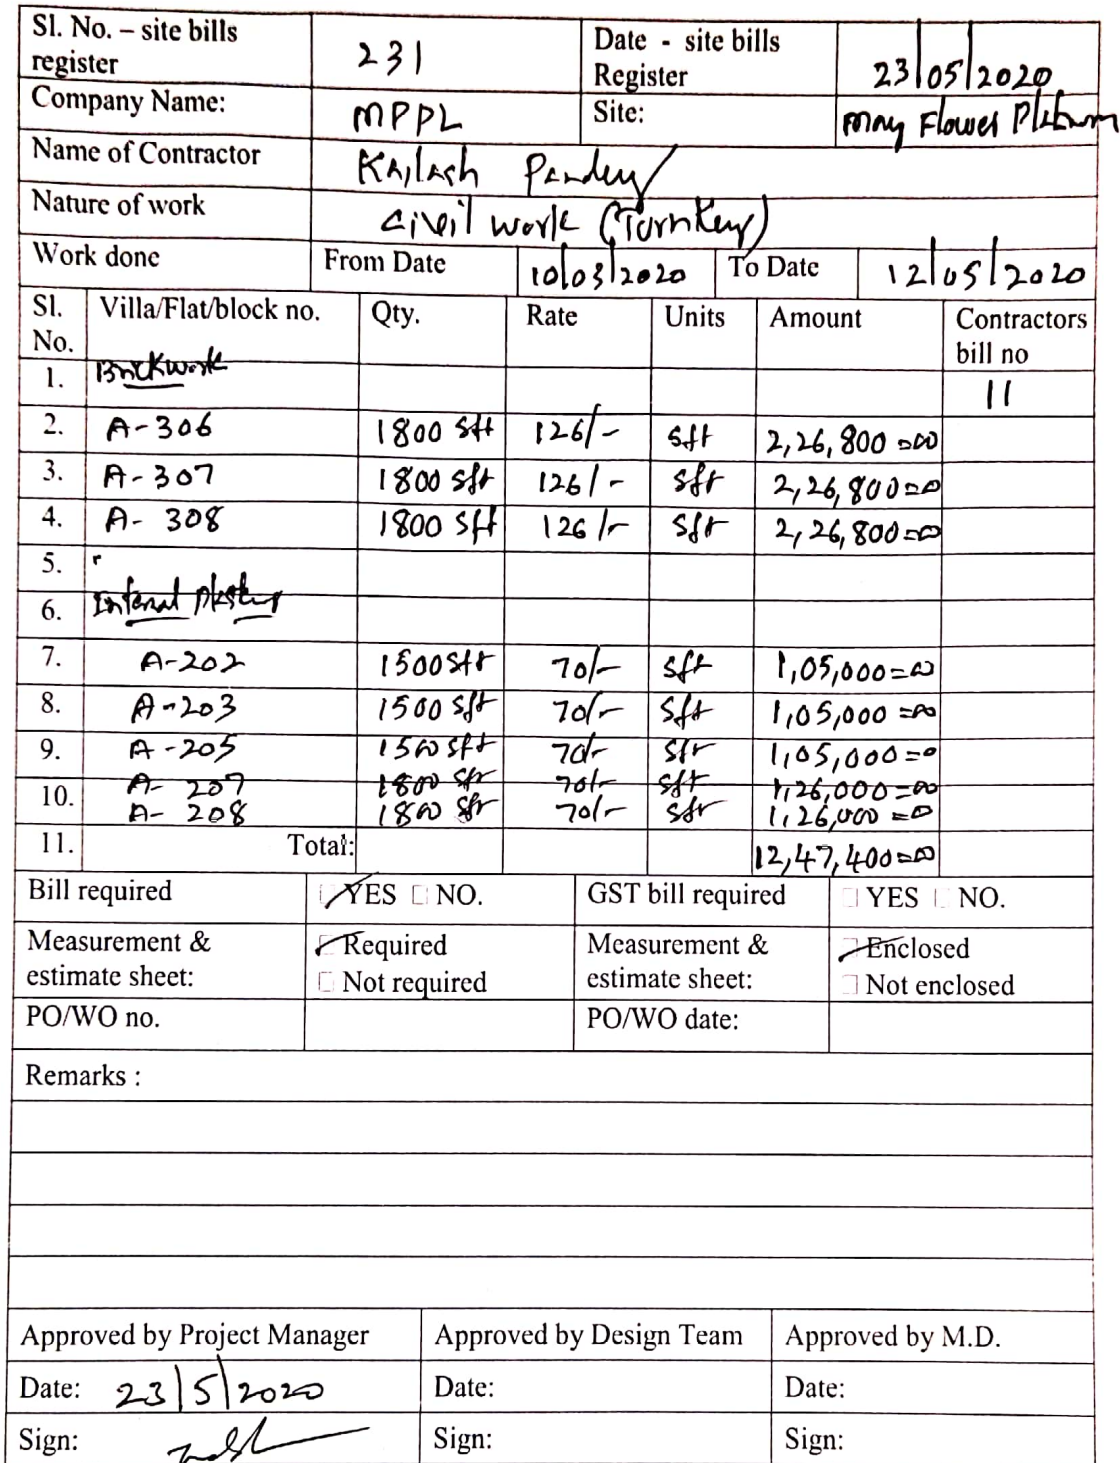 Sl. No. – site bills register 231 Date - site bills Register 23/05/2020
Company Name: MPPL Site: May Flower Platinum
Name of Contractor Kailash Pandey
Nature of work Civil work (Turnkey)
Work done From Date 10/03/2020 To Date 12/05/2020
Sl. No. Villa/Flat/block no. Qty. Rate Units Amount Contractors bill no
1. Brickwork 11
2. A-306 1800 sft 126/- sft 2,26,800=00
3. A-307 1800 sft 126/- sft 2,26,800=00
4. A-308 1800 sft 126/- sft 2,26,800=00
5.
6. Internal plastering
7. A-202 1500 sft 70/- sft 1,05,000=00
8. A-203 1500 sft 70/- sft 1,05,000=00
9. A-205 1500 sft 70/- sft 1,05,000=0
10. A-207 1800 sft 70/- sft 1,26,000=00
A-208 1800 sft 70/- sft 1,26,000=0
11. Total: 12,47,400=00
Bill required YES NO. GST bill required YES NO.
Measurement & estimate sheet: Required Not required Measurement & estimate sheet: Enclosed Not enclosed
PO/WO no. PO/WO date:
Remarks :
Approved by Project Manager Approved by Design Team Approved by M.D.
Date: 23/5/2020 Date: Date:
Sign: Sign: Sign: